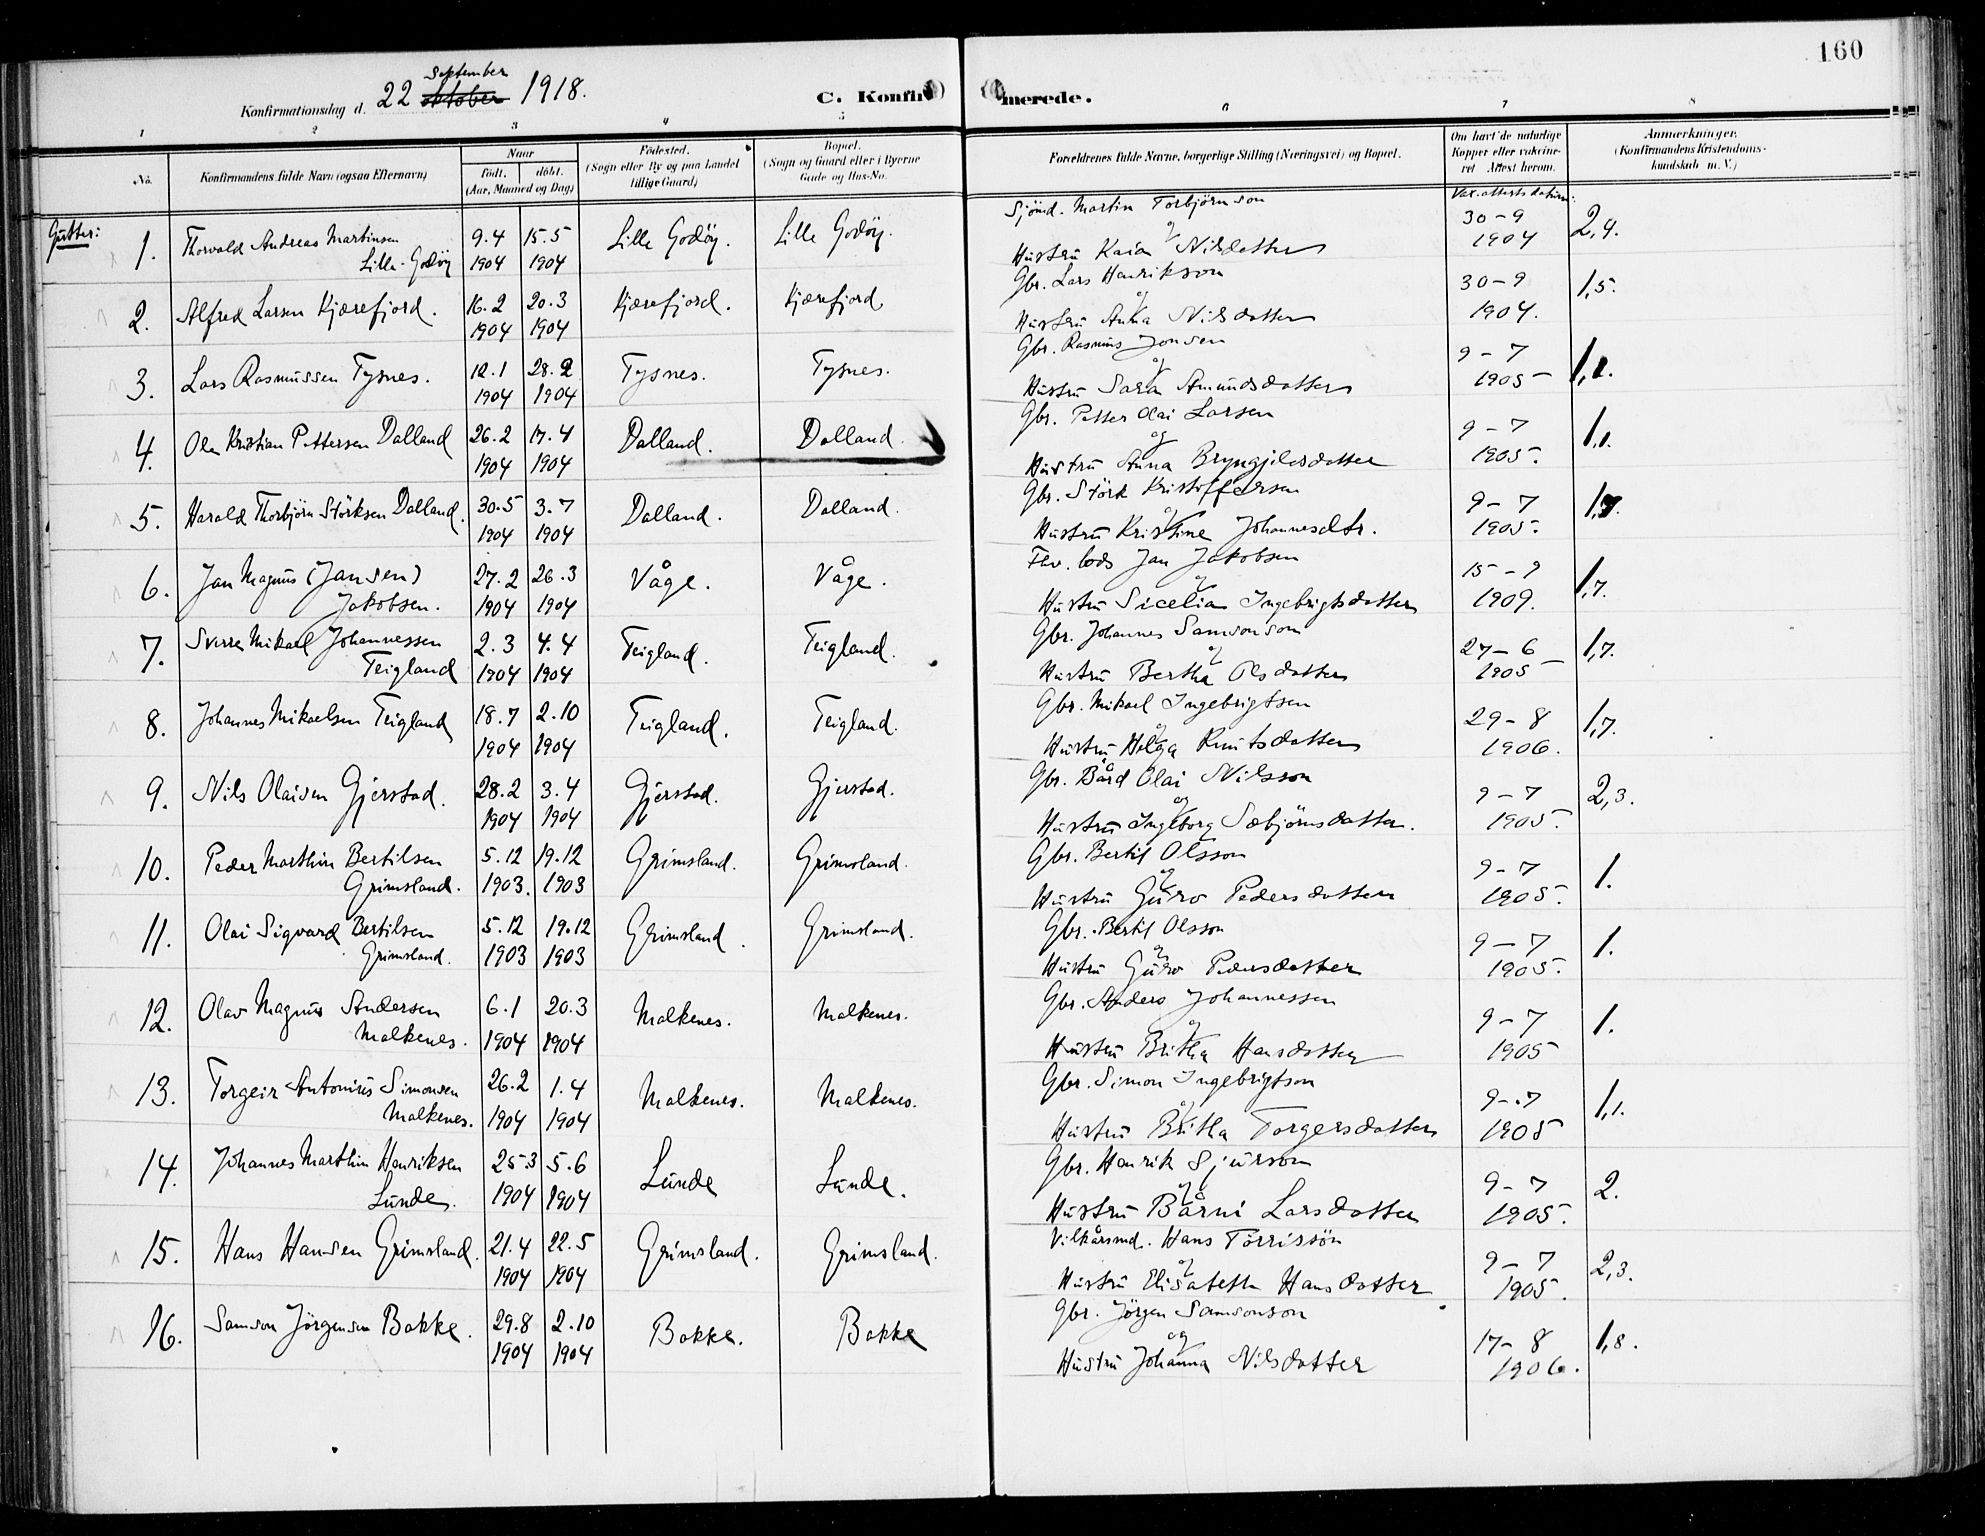 160
Konfirmationsdag d. 22 september oktober 1918.
C. Konfirmerede.
1 2 3 4 5 6 7 8
No.
Konfirmandens fulde Navn (ogsaa Efternavn)
Naar
födt. döbt.
(Aar, Maaned og Dag)
Födested.
(Sogn eller By og paa Landet
tillige Gaard)
Bopæl.
(Sogn og Gaard eller i Byerne
Gade og Hus-No.
Forældrenes fulde Navne, borgerlige Stilling (Næringsvei) og Bopæl.
Om havt de naturlige
Kopper eller vakcine-
ret Attest herom.
Anmærkninger.
(Konfirmandens Kristendoms-
kundskab m. V.)
Vax.attests datum:
Gutter:
1. Thorvald Andreas Martinsen 9.4 15.5 Lille Godöy. Lille Godöy. Sjömd. Martin Torbjörnson 30-9 2,4.
Lille-Godöy 1904 1904 og Hustru Kaia Nilsdatter 1904
2. Alfred Larsen Kjærefjord. 16.2 20.3 Kjærefjord. Kjærefjord Gbr. Lars Henrikson 30-9 1,5.
1904 1904 og Hustru Anna Nilsdatter 1904.
3. Lars Rasmussen Tysnes. 12.1 28.2 Tysnes. Tysnes. Gbr. Rasmus Jonsen 9-7
1904 1904 og Hustru Sara Amundsdatter 1905
4. Ole Kristian Pettersen Dalland 26.2 17.4 Dalland. Dalland. Gbr. Petter Olai Larsen 9-7 1,1.
1904 1904 og Hustru Anna Bryngjelsdatter 1905.
5. Harald Thorbjörn Störksen Dalland. 30.5 3.7 Dalland. Dalland. Gbr. Störk Kristoffersen 9-7
1904 1904 og Hustru Kristine Johannesdtr. 1905.
6. Jan Magnus (Jansen) 27.2 26.3 Våge. Våge. Fhv. lods Jan Jakobsen 15-9 1,7.
Jakobsen. 1904 1904 og Hustru Sicelia Ingebrigtsdatter 1909.
7. Sverre Mikael Johannessen 2.3 4.4 Teigland. Teigland. Gbr. Johannes Samsonson 27-6 1,7.
Teigland 1904 1904 og Hustru Bertha Olsdatter 1905
8. Johannes Mikaelsen Teigland 18.7 2.10 Teigland. Teigland. Gbr. Mikael Ingebrigtsen 29-8 1,7.
1904 1904 og Hustru Helga Knutsdatter 1906.
9. Nils Olaisen Gjerstad. 28.2 3.4 Gjerstad. Gjerstad. Gbr. Bård Olai Nilsson 9-7 2,3.
1904 1904 og Hustru Ingeborg Sæbjörnsdatter. 1905.
10. Peder Marthin Bertilsen 5.12 19.12 Grimsland. Grimsland. Gbr. Bertil Olsson 9-7 1.
Grimsland. 1903. 1903 og Hustru Guro Pedersdatter 1905.
11. Olai Sigvard Bertilsen 5.12 19.12 Grimsland. Grimsland. Gbr. Bertil Olsson 9-7 1.
Grimsland. 1903 1903 og Hustru Guro Pedersdatter 1905.
12. Olav Magnus Andersen 6.1 20.3 Malkenes. Malkenes. Gbr. Anders Johannessen 9-7 1.
Malkenes. 1904 1904 og Hustru Britha Hansdatter 1905
13. Torgeir Antonius Simonsen 26.2 1.4 Malkenes. Malkenes. Gbr. Simon Ingebrigtson 9-7 1,1.
Malkenes. 1904 1904 og Hustru Britha Torgersdatter 1905
14. Johannes Marthin Henriksen 25.3 5.6 Lunde Lunde. Gbr. Henrik Sjurson 9-7 2.
Lunde. 1904 1904 og Hustru Bårni Larsdatter 1905.
15. Hans Hansen Grimsland. 21.4 22.5 Grimsland. Grimsland. Vilkårsmd. Hans Torrissön 9-7 2,3.
1904 1904 og Hustru Elisabeth Hansdatter 1905.
16. Samson Jörgensen Bakke. 29.8 2.10 Bakke. Bakke Gbr. Jörgen Samsonson 17-8 1,8.
1904 1904 og Hustru Johanna Nilsdatter 1906.